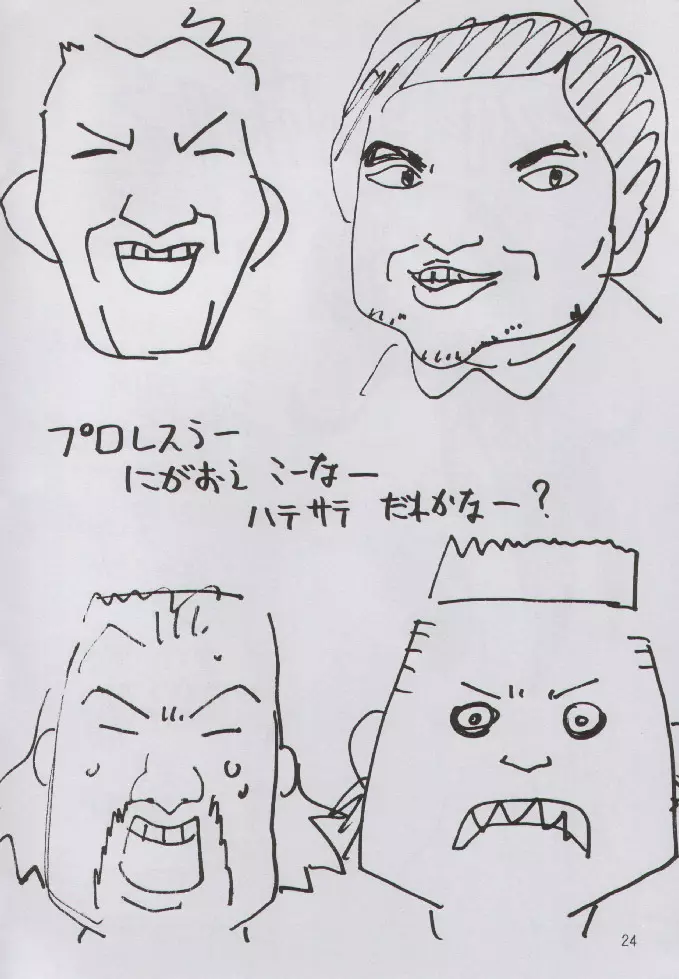 プロレスラー
にがおえ こーなー
ハテサテ だれかなー?
24